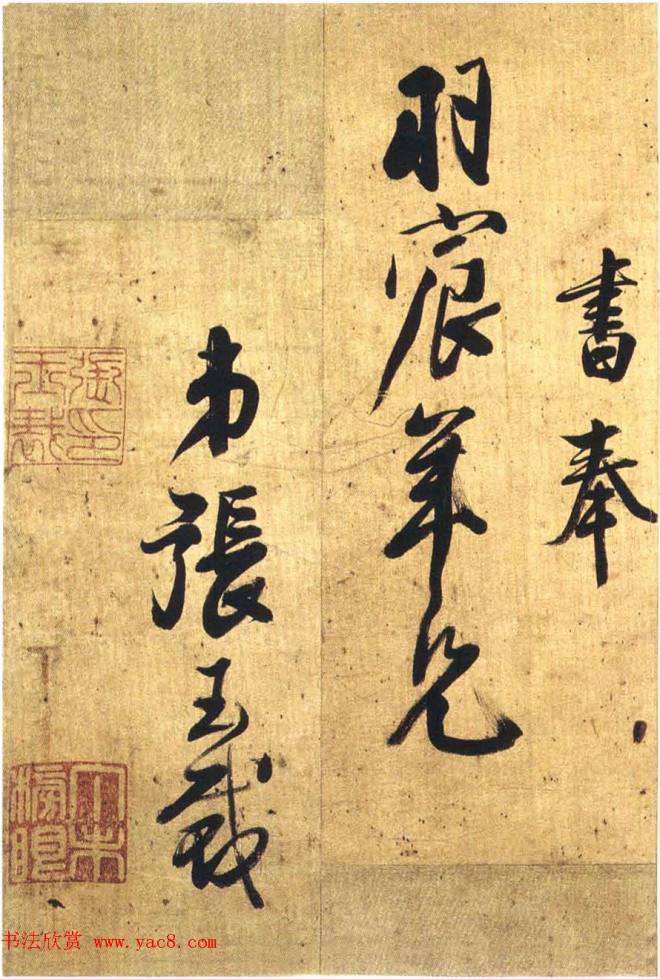 書奉
羽宸年兄
弟張玉裁
張印玉裁
书法欣赏 www.yac8.com